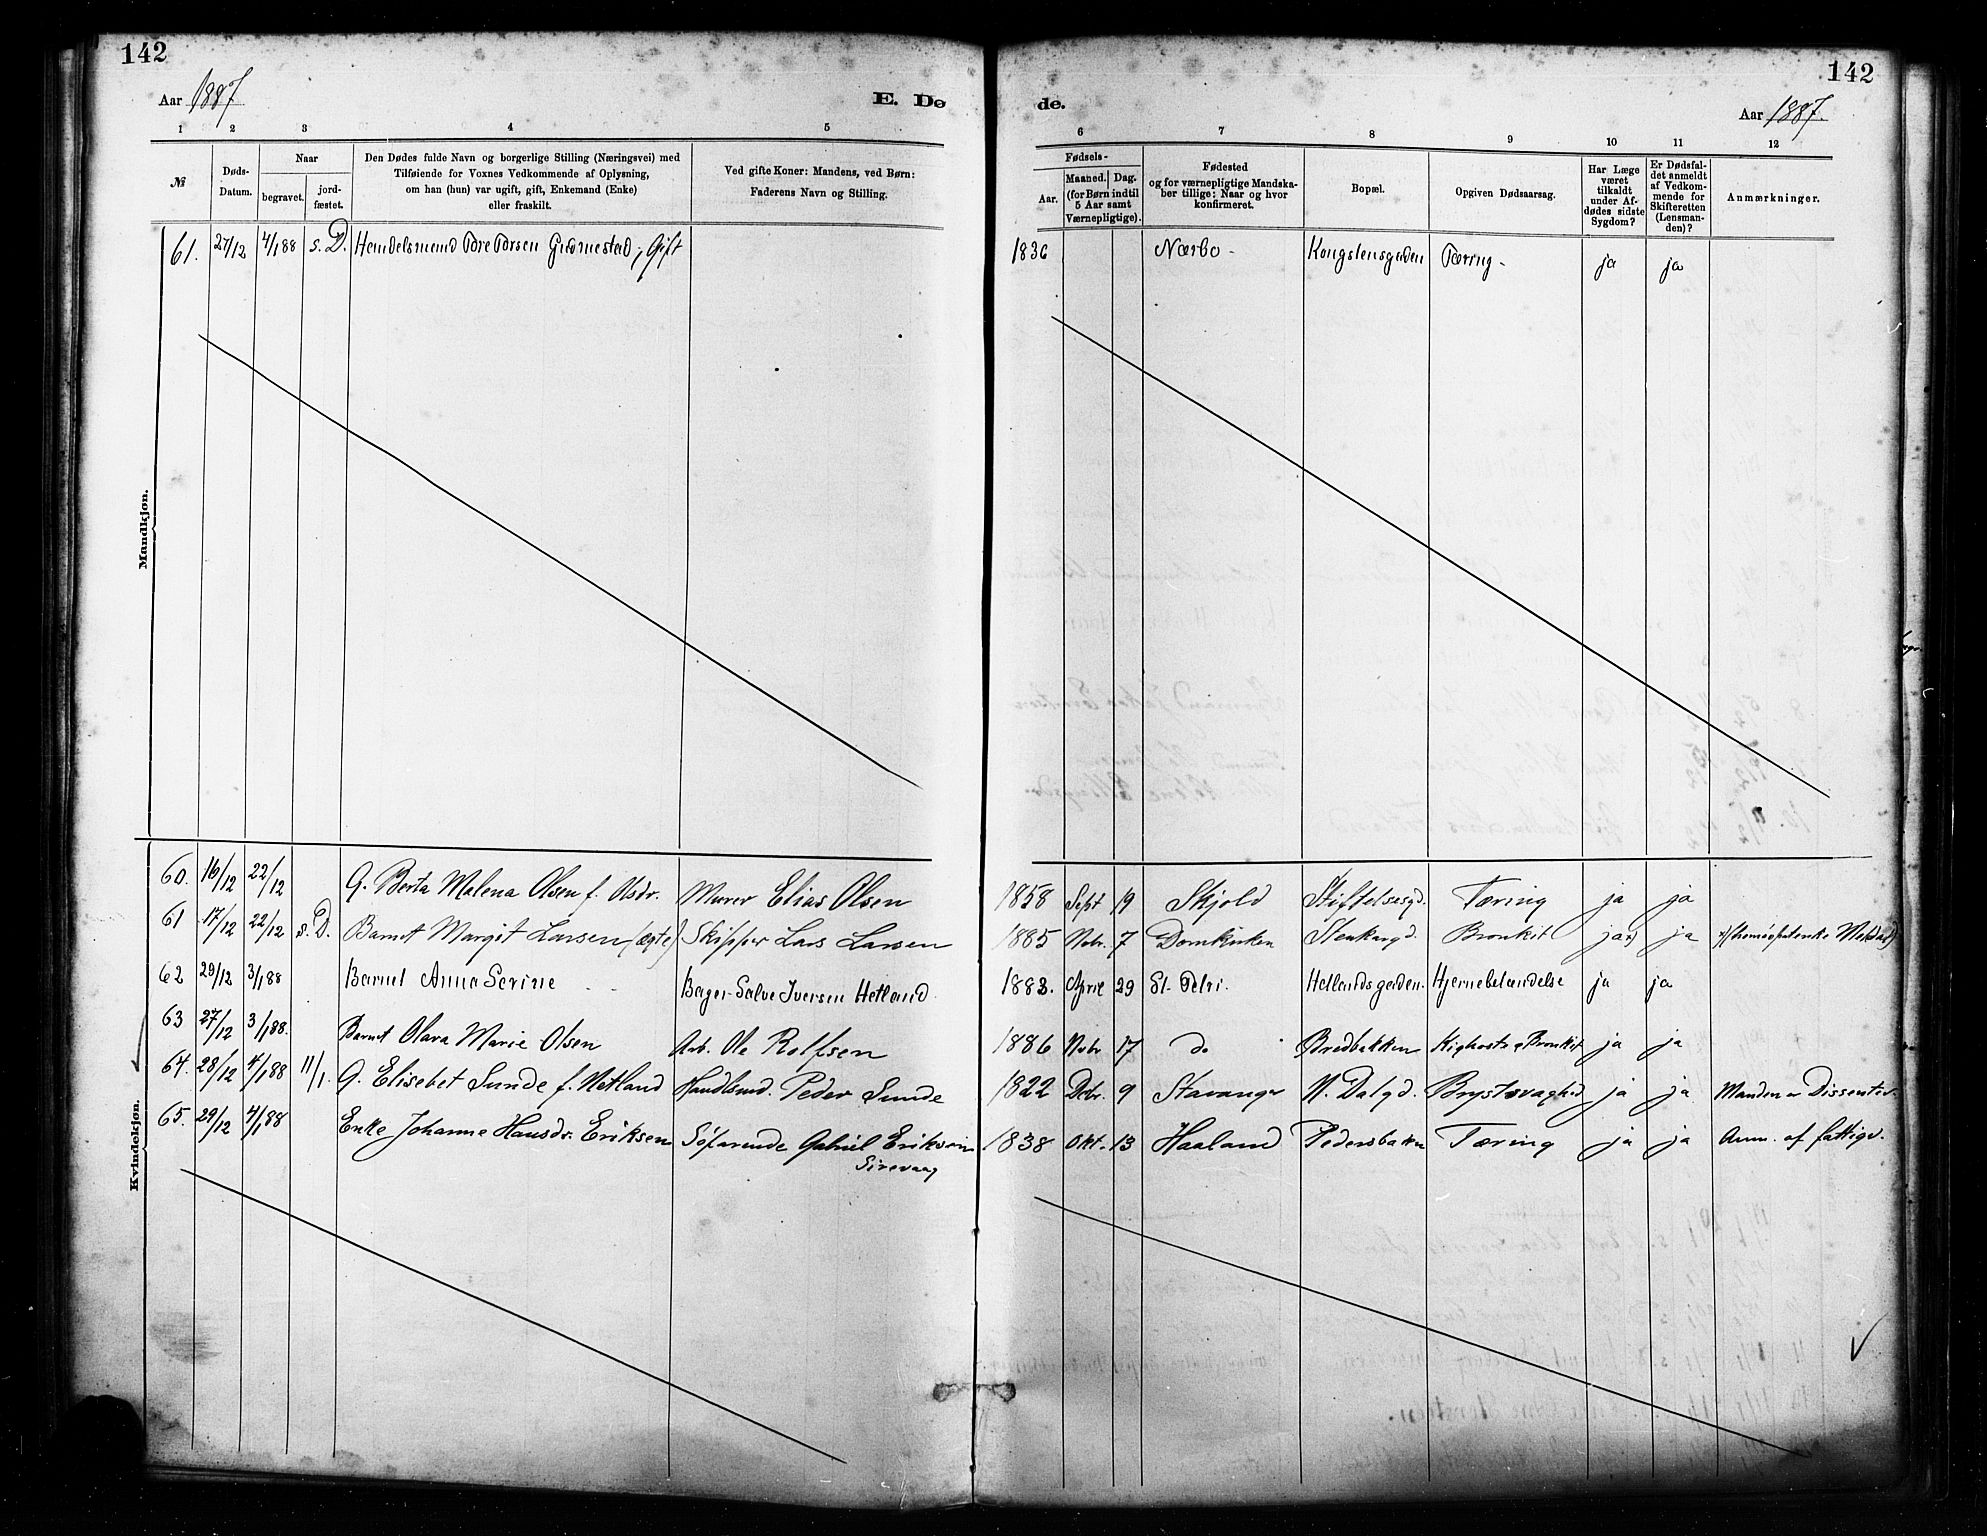 142
Aar 1887
E. Dø
1 2 3 4 5
№
Døds-
Datum.
Naar
begravet.
jord-
fæstet.
Den Dødes fulde Navn og borgerlige Stilling (Næringsvei) med
Tilføiende for Voxnes Vedkommende af Oplysning,
om han (hun) var ugift, gift, Enkemand (Enke)
eller fraskilt.
Ved gifte Koner: Mandens, ved Børn:
Faderens Navn og Stilling.
Mandkjøn.
61. 27/12 4/1 88 s. D. Handelsmand Tore Torsen ; Gift
Kvindekjøn.
60. 16/12 22/12 G. Berta Malena Olsen f. Olsdr. Murer Elias Olsen
61 17/12 22/12 s. D. Barnet Margit Larsen (ægte) Skipper Lars Larsen
62 29/12 3/1 88 Barnet Anna Serine Bager Salve Iversen Hetland
63 27/12 3/1 88. Barnet Olava Marie Olsen Arb. Ole Rolfsen
64. 28/12 4/1 88 11/1. G. Elisebet Sunde f. Netland Peder Sunde
65. 29/12 4/1 88 Enke Johanna Hansdr. Eriksen Søfarende Gabriel Eriksen
Sirevaag
142
de.
Aar 1887.
6 7 8 9 10 11 12
Fødsels-
Aar.
Maaned. Dag.
(for Børn indtil
5 Aar samt
Værnepligtige).
Fødested
og for værnepligtige Mandska-
ber tillige: Naar og hvor
konfirmeret.
Bopæl.
Opgiven Dødsaarsag.
Har Læge
været
tilkaldt
under Af-
dødes sidste
Sygdom?
Er Dødsfal-
det anmeldt
af Vedkom-
mende for
Skifteretten
(Lensman-
den)?
Anmærkninger.
1836 Nærbo - Kongstensgaden Tæring - ja ja
1858 Sept 19 Skjold Stiftelsesgd. Tæring ja ja
1885 Nobr. 7 Domkirken Stenkargd. Bronkit ja x) ja
1883. April 29 St. Petri. Hetlandsgaden. Hjernebetændelse ja ja
1886 Nobr 17 do Bredbakken Kighoste & Bronkit ja ja
1822 Debr. 9 Stavanger N. Dalgd. Brystsvaghed ja ja Manden er Dissenter.
1838 Okt. 13 Haaland Pedersbaken Tæring ja ja Anm. af fattigv.